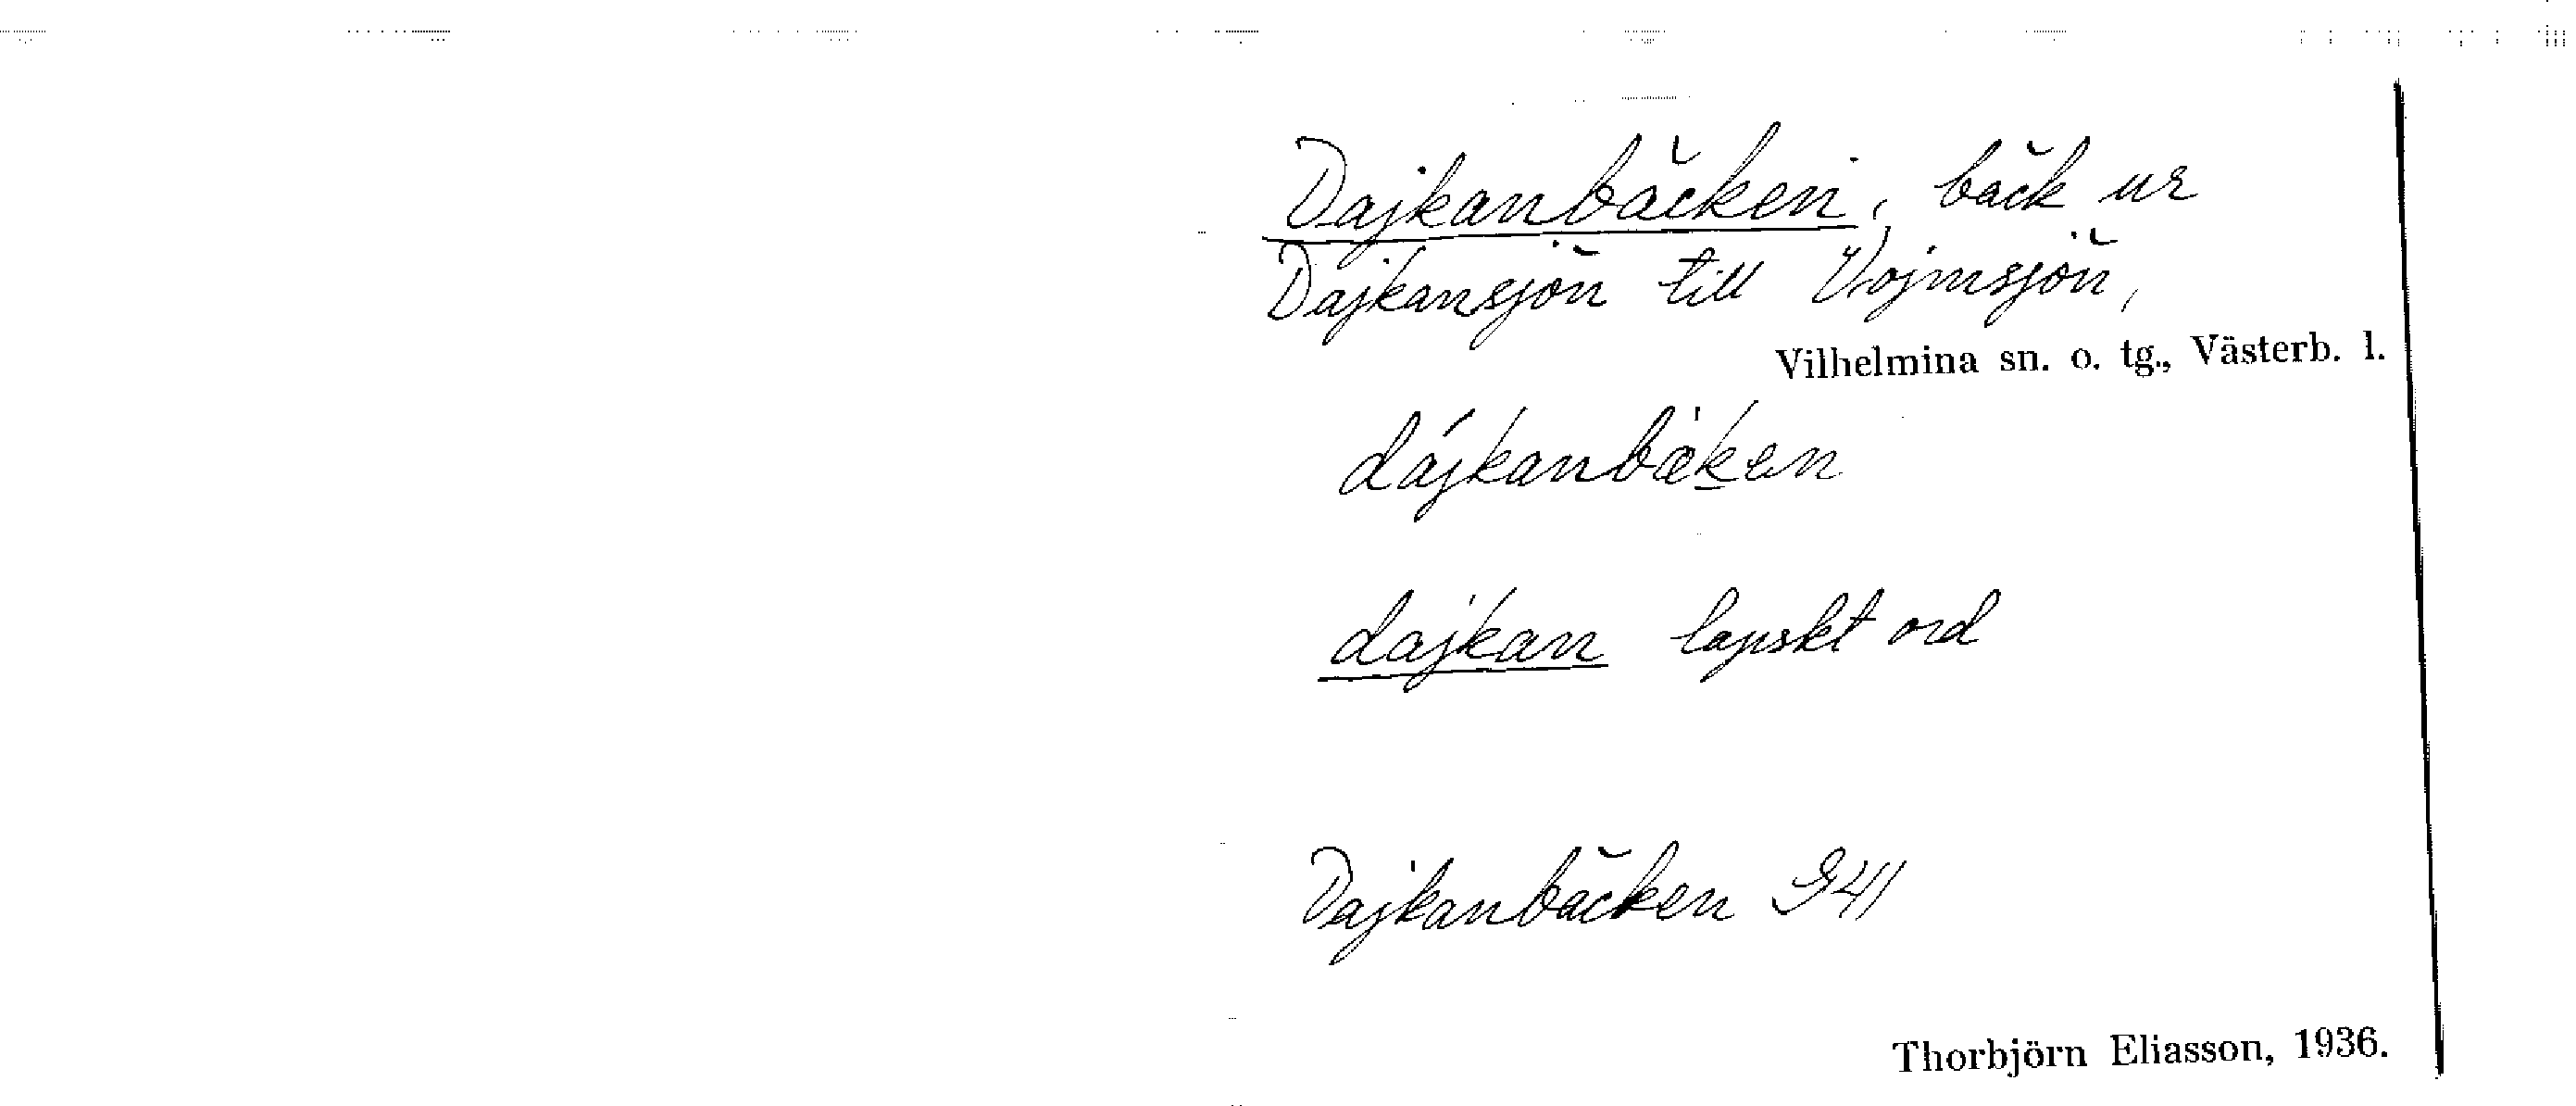 Dajkanbäcken, bäck ur
Dajkansjön till Vojmsjön,
Vilhelmina sn. o. tg., Västerb. l.
dájkanbæ̀ken
dajkan lapskt ord
Dajkanbäcken G41
Thorbjörn Eliasson, 1936.